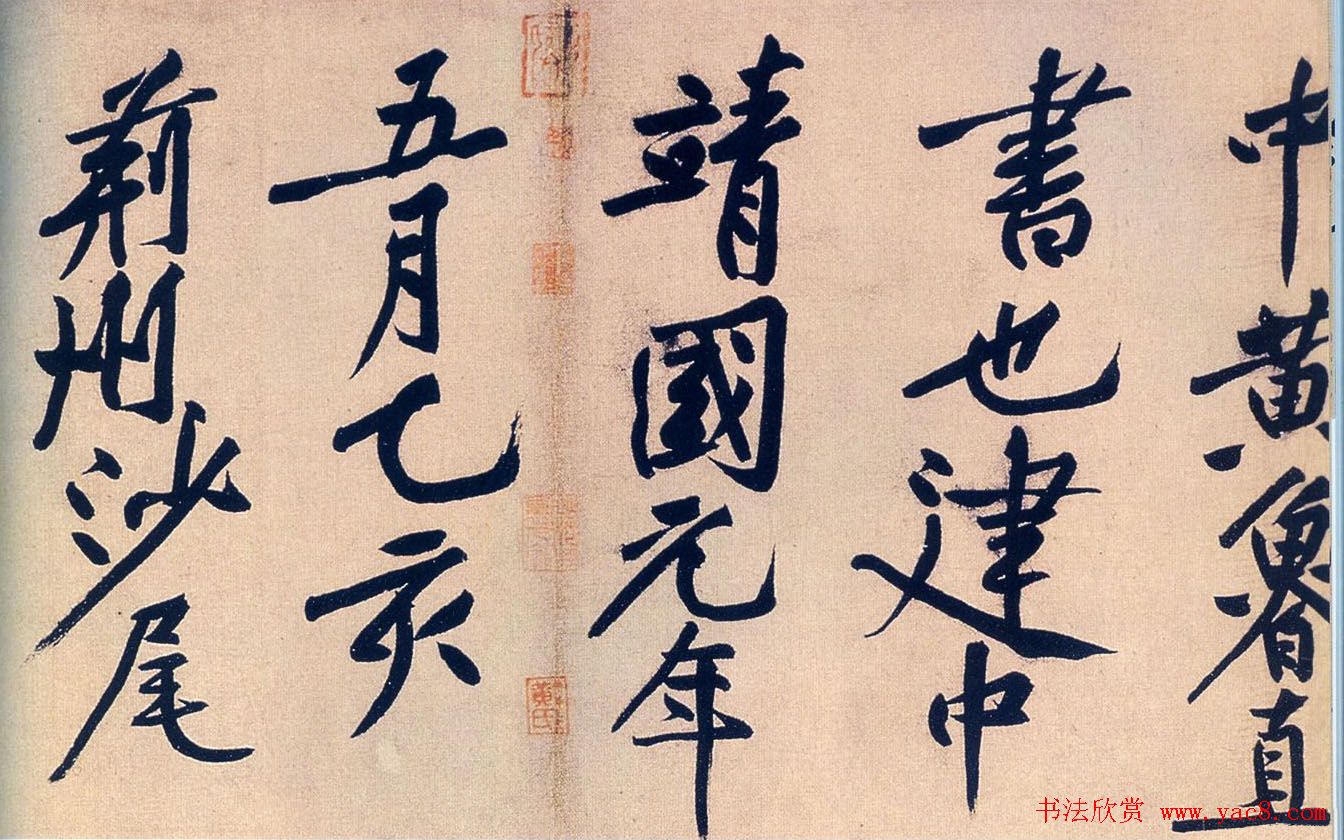 中黄魯直
書也建中
靖國元年
五月乙亥
荊州沙尾
黃氏
书法欣赏 www.yac8.com